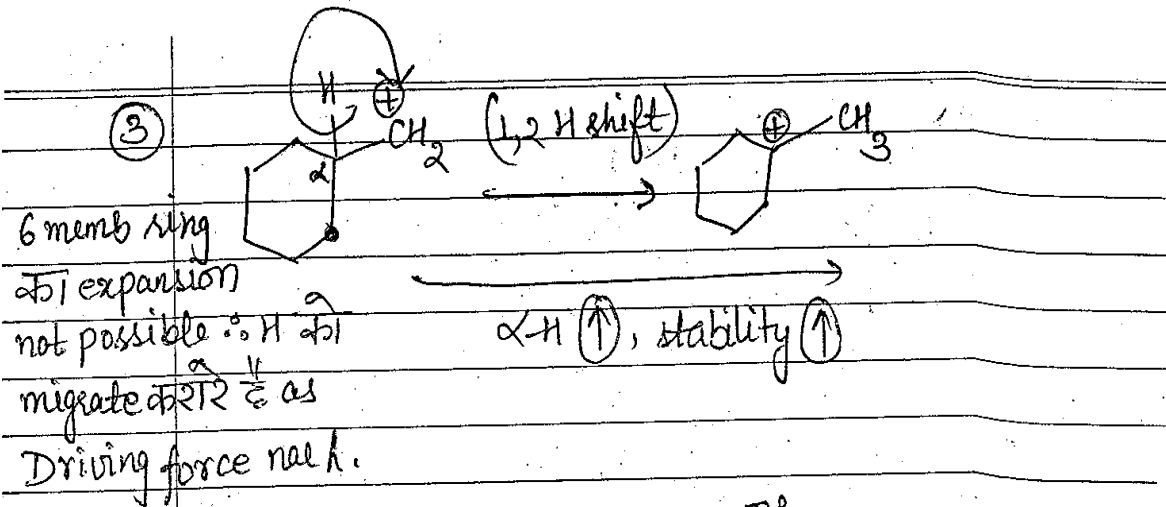 ③
H
⊕
CH2
(1,2 H shift)
⊕
CH3
α
6 memb ring
का expansion
not possible ∴ H को
migrate करा रहे हैं as
Driving force nae h.
α-H ↑, stability ↑